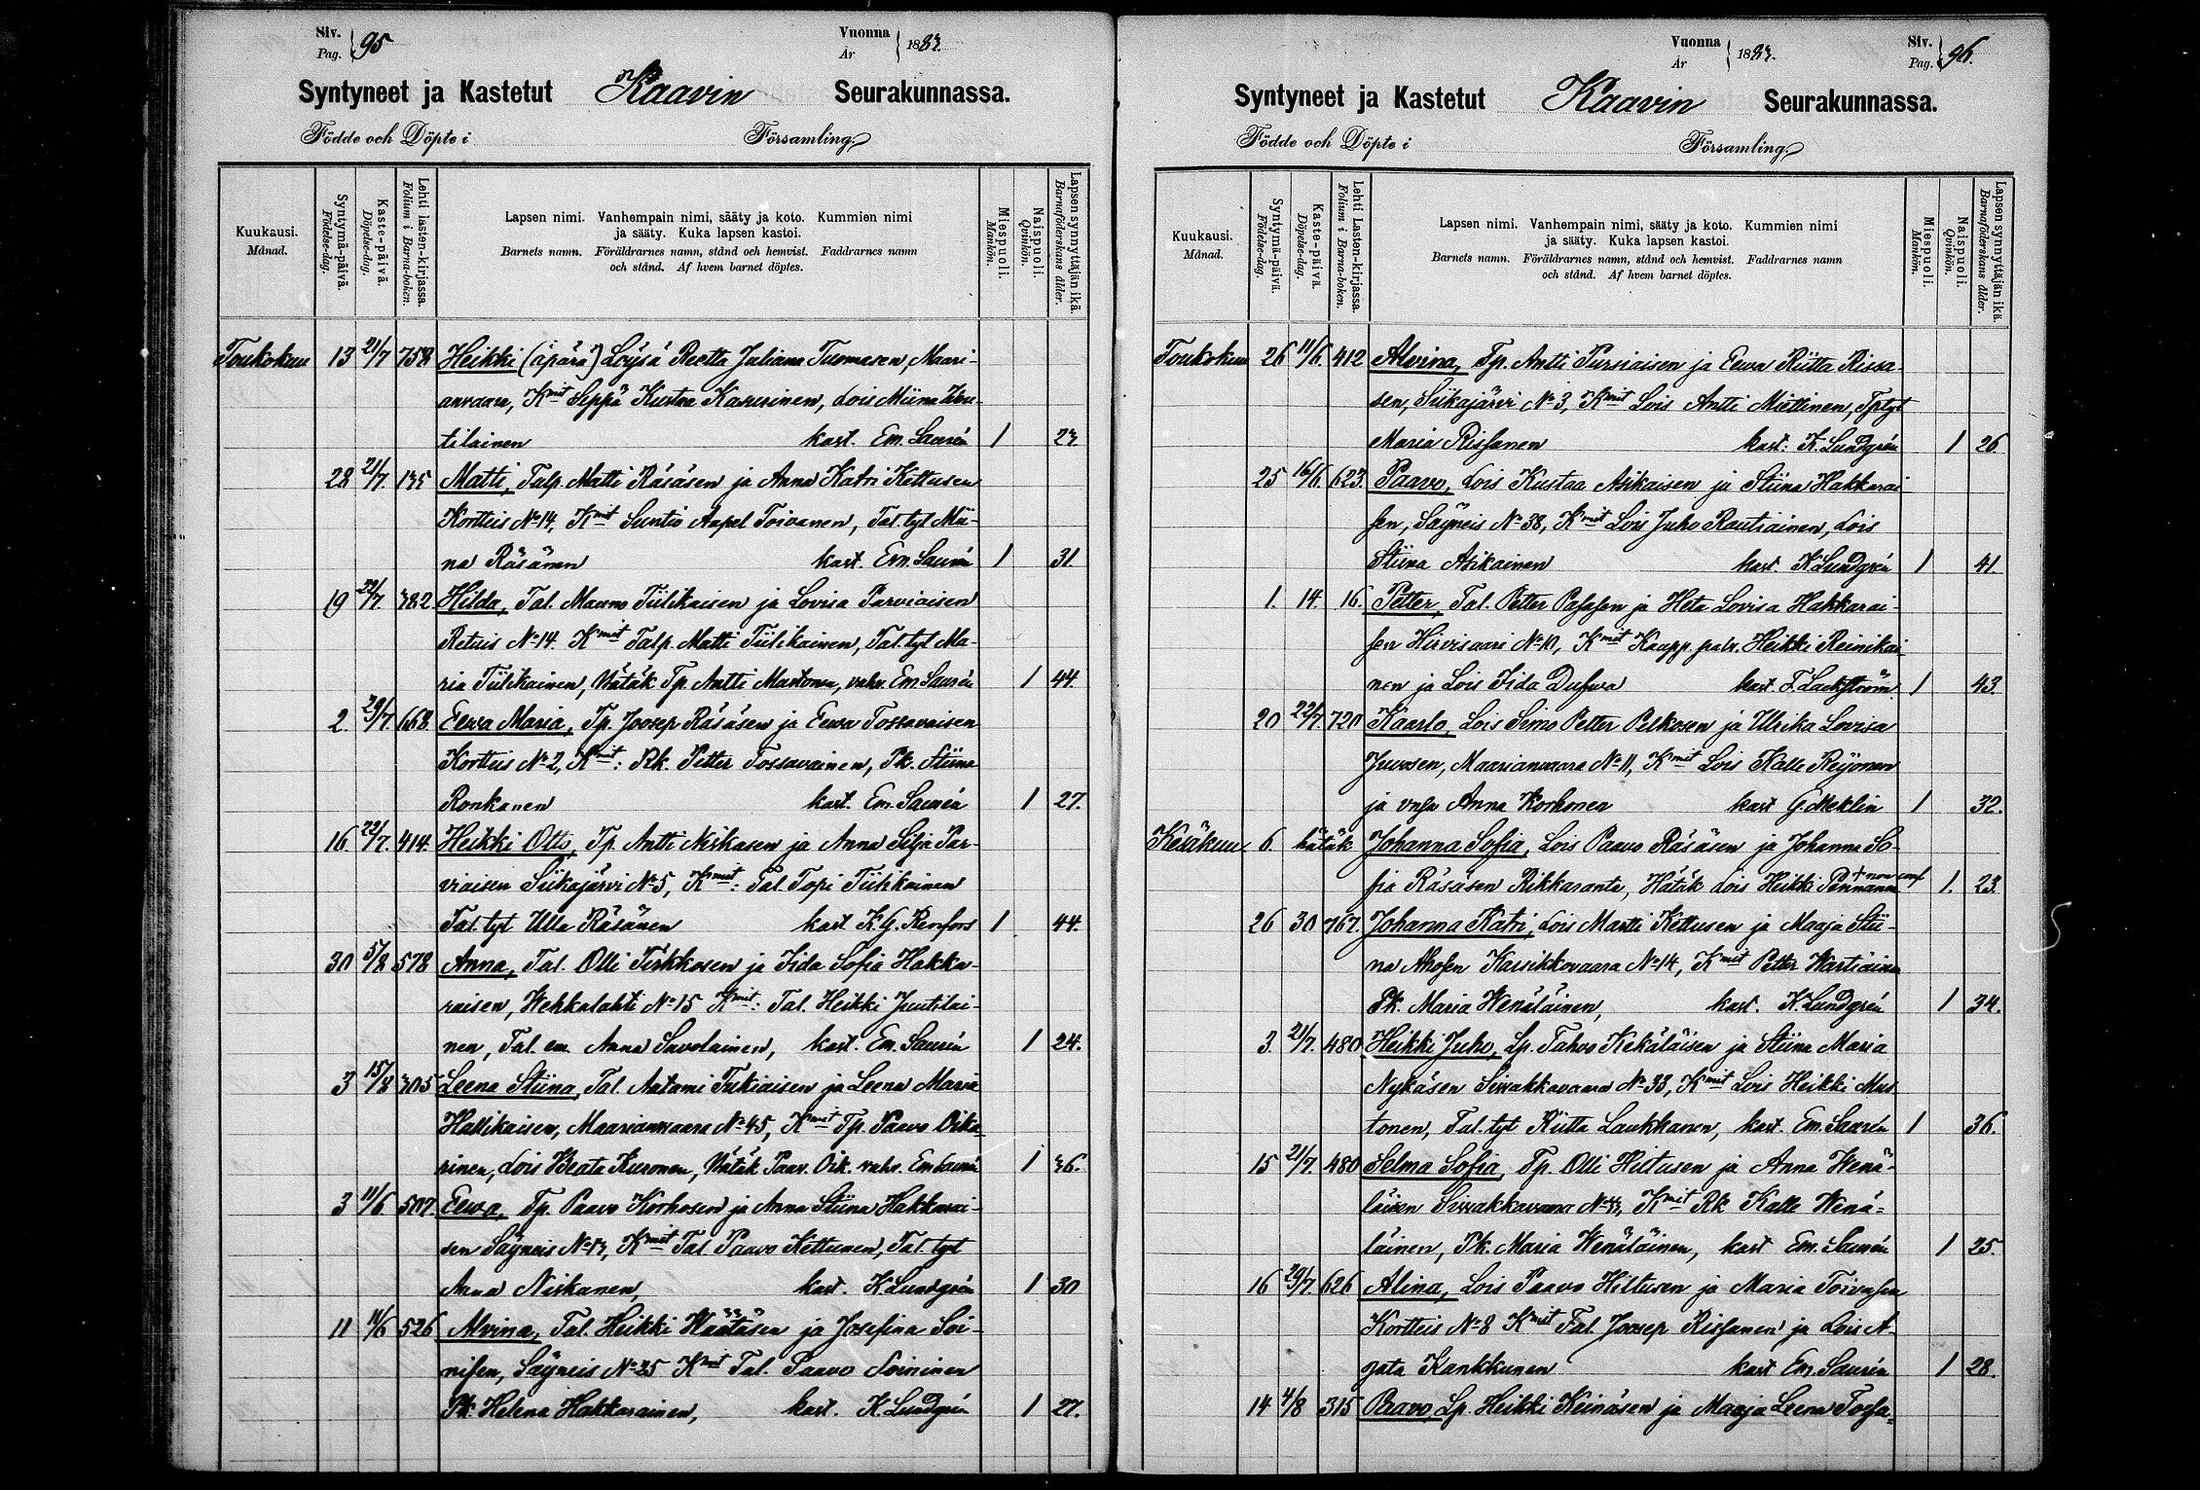 Siv. Pag. 95
Vuonna År 1883.
Syntyneet ja Kastetut Kaavin Seurakunnassa.
Födde och Döpte i Församling.
Kuukausi. Månad.
Syntymä-päivä. Födelse-dag.
Kaste-päivä. Döpelse-dag.
Lehti lasten-kirjassa. Folium i Barna-boken.
Lapsen nimi. Vanhempain nimi, sääty ja koto. Kummien nimi
ja sääty. Kuka lapsen kastoi.
Barnets namn. Föräldrarnes namn, stånd och hemvist. Faddrarnes namn
och stånd. Af hvem barnet döptes.
Miespuoli. Mankön.
Naispuoli. Qvinkön.
Lapsen synnyttäjän ikä. Barnaföderskans ålder.
Toukokuu 13 21/7 758 Heikki (äpärä) Loysä Reetta Juliana Tuomasen, Maari-
anvaara, Kmit Seppä Kustaa Kasurinen, Lois Miina
tilainen kast. Em. Saurén 1 23
28 21/7. 135 Matti, Talp. Matti Räsäsen ja Anna Katri Kettusen
Kortteis No 14, Kmit Suntio Aapel Toivanen, Tal. tyt Mii-
na Räsänen kast. Em. Saurén 1 31
19 29/7. 382 Hilda, Tal. Mauno Tiilikaisen ja Lovisa Parviaisen
Retuis No 14. Kmit Talp. Matti Tiilikainen, Tal. tyt Ma-
ria Tiilikainen, Hätäk Tp. Antti Martonen, vahv. Em Saurén 1 44.
2. 29/7. 668 Eewa Maria, Tp. Joosep Räsäsen ja Eewa Tossavaisen
Kortteis No 2, Kmit: Rk. Petter Tossavainen, Pk. Stiina
Ronkanen kast. Em. Saurén 1 27.
16 22/7. 414. Heikki Otto, Tp. Antti Niskasen ja Anna Silja Par-
viaisen Siikajärvi No 5, Kmit: Tal. Topi Tiilikainen
Tal. tyt Ulla Räsänen kast K. G. Renfors 1 44.
30 5/8 578 Anna, Tal. Olli Pirkkosen ja Iida Sofia Hakka-
raisen, Wehkalahti No 15 Kmit: Tal. Heikki Juutilai-
nen, Tal. em. Anna Savolainen, kast. Em. Saurén 1 24.
3 15/8 305 Leena Stiina, Tal. Aatami Tukiaisen ja Leena Maria
Hallikaisen, Maarianvaara No 45, Kmit Tp. Paavo Oika-
rinen, Lois Beata Kuronen, Hätäk Paav. Oik. vahv. Em Saurén 1 36.
3 11/6. 507. Eewa, Tp. Paavo Korhosen ja Anna Stiina Hakkarai-
sen Säyneis No 13, Kmit Tal. Paavo Kettunen, Tal. tyt
Anna Niskanen, kast. K. Lundgrén 1 30
11 11/6 526 Alvina, Tal. Heikki Wäätäsen ja Josefina Soi-
nisen, Säyneis No 25 Kmit Tal. Paavo Soininen
Pk. Helena Hakkarainen, kast. K. Lundgrén 1 27.
Siv. Pag. 96.
Vuonna År 1883.
Syntyneet ja Kastetut Kaavin Seurakunnassa.
Födde och Döpte i Församling.
Kuukausi. Månad.
Syntymä-päivä. Födelse-dag.
Kaste-päivä. Döpelse-dag.
Lehti Lasten-kirjassa. Folium i Barna-boken.
Lapsen nimi. Vanhempain nimi, sääty ja koto. Kummien nimi
ja sääty. Kuka lapsen kastoi.
Barnets namn. Föräldrarnes namn, stånd och hemvist. Faddrarnes namn
och stånd. Af hvem barnet döptes.
Miespuoli. Mankön.
Naispuoli. Qvinkön.
Lapsen synnyttäjän ikä. Barnaföderskans ålder.
Toukokuu 26 11/6. 412 Alvina, Tp. Antti Pursiaisen ja Eewa Riitta Rissa-
sen, Siikajärvi No 3, Kmit Lois Antti Miettinen, Tptyt
Maria Rissanen kast. K. Lundgrén 1 26
25 16/6. 623. Paavo, Lois Kustaa Asikaisen ja Stiina Hakkarai
sen, Säyneis No 38, Kmit Lois Juho Rautiainen, Lois
Stiina Asikainen kast. K. Lundgrén 1 41.
1. 14. 16. Petter, Tal. Petter Pasasen ja Heta Lovisa Hakkarai-
sen Hirvisaari No 10, Kmit Kaupp. palv. Heikki Reinikai
nen ja Lois Iida Dufva kast. F. Lackström 1 43.
20 22/7. 720 Kaarlo, Lois Simo Petter Pelkosen ja Ulrika Lovisa
Juvosen, Maarianvaara No 11, Kmit Lois Kalle Reijonen
ja vaja Anna Korhonen kast G. Meklin 1 32.
Kesäkuu 6. hätäk Johanna Sofia, Lois Paavo Räsäsen ja Johanna So-
fia Räsäsen Rikkaranta, Hätäk Lois Heikki Pennanen + non conf 1. 23.
26 30 767. Johanna Katri, Lois Martti Kettusen ja Maaja Stii-
na Ahosen Karsikkovaara No 14, Kmit Petter Wartiainen
Pk. Maria Wenäläinen, kast. K. Lundgrén 1 34.
3. 21/7. 480 Heikki Juho, Lp. Tahvo Kekäläisen ja Stiina Maria
Nykäsen Sivakkavaara No 33, Kmit Lois Heikki Mus-
tonen, Tal. tyt Riitta Laukkanen, kast. Em. Saurén 1 36.
15 21/7. 480 Selma Sofia, Tp. Olli Hiltusen ja Anna Wenä-
läisen Sivakkavaara No 33, Kmit Rk Kalle Wenä-
läinen, Pk. Maria Wenäläinen, kast Em. Saurén 1 25.
16 29/7. 626 Alina, Lois Paavo Hiltusen ja Maria Toivasen
Kortteis No 8 Kmit Tal. Joosep Rissanen ja Lois A-
gata Kankkunen kast Em. Saurén 1 28.
14 4/8 315 Paavo, Lp. Heikki Keinäsen ja Maaja Leena Tossa-